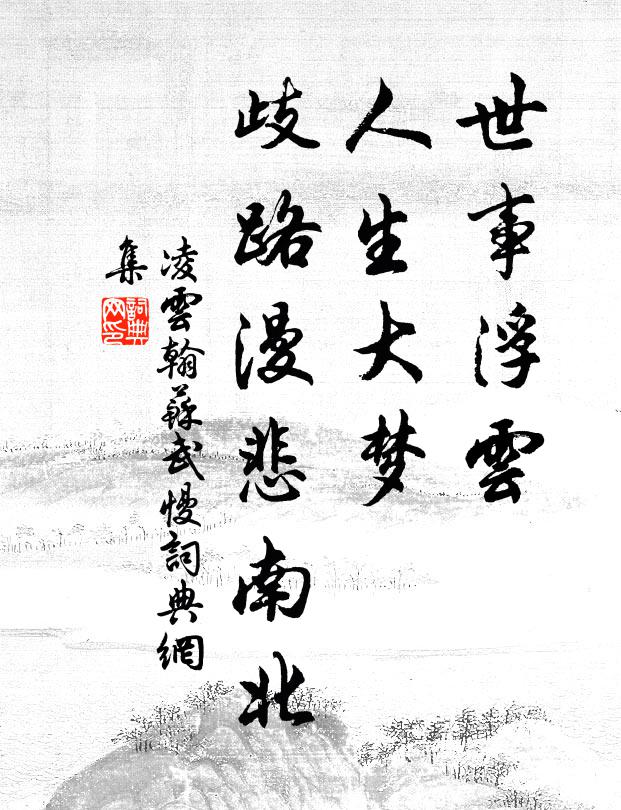 世事浮雲
人生大梦
歧路漫悲南北
凌雲翰蘇武慢詞典網
集
詞典网印